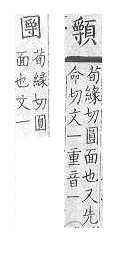 荀緣切圓面也又先
命切文一重音一
荀緣切圓
面也文一